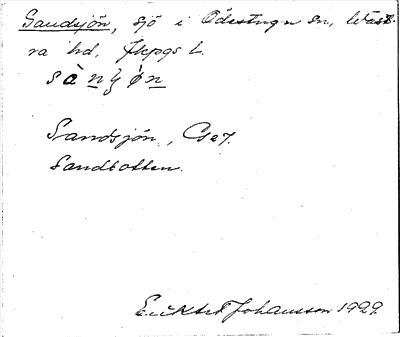 Sandsjön, sjö i Ödestugu sn, Väst-
ra hd, Jkpgs l.
sànʃön
Sandsjön, Ge7.
Sandbotten.
Johansson 1929